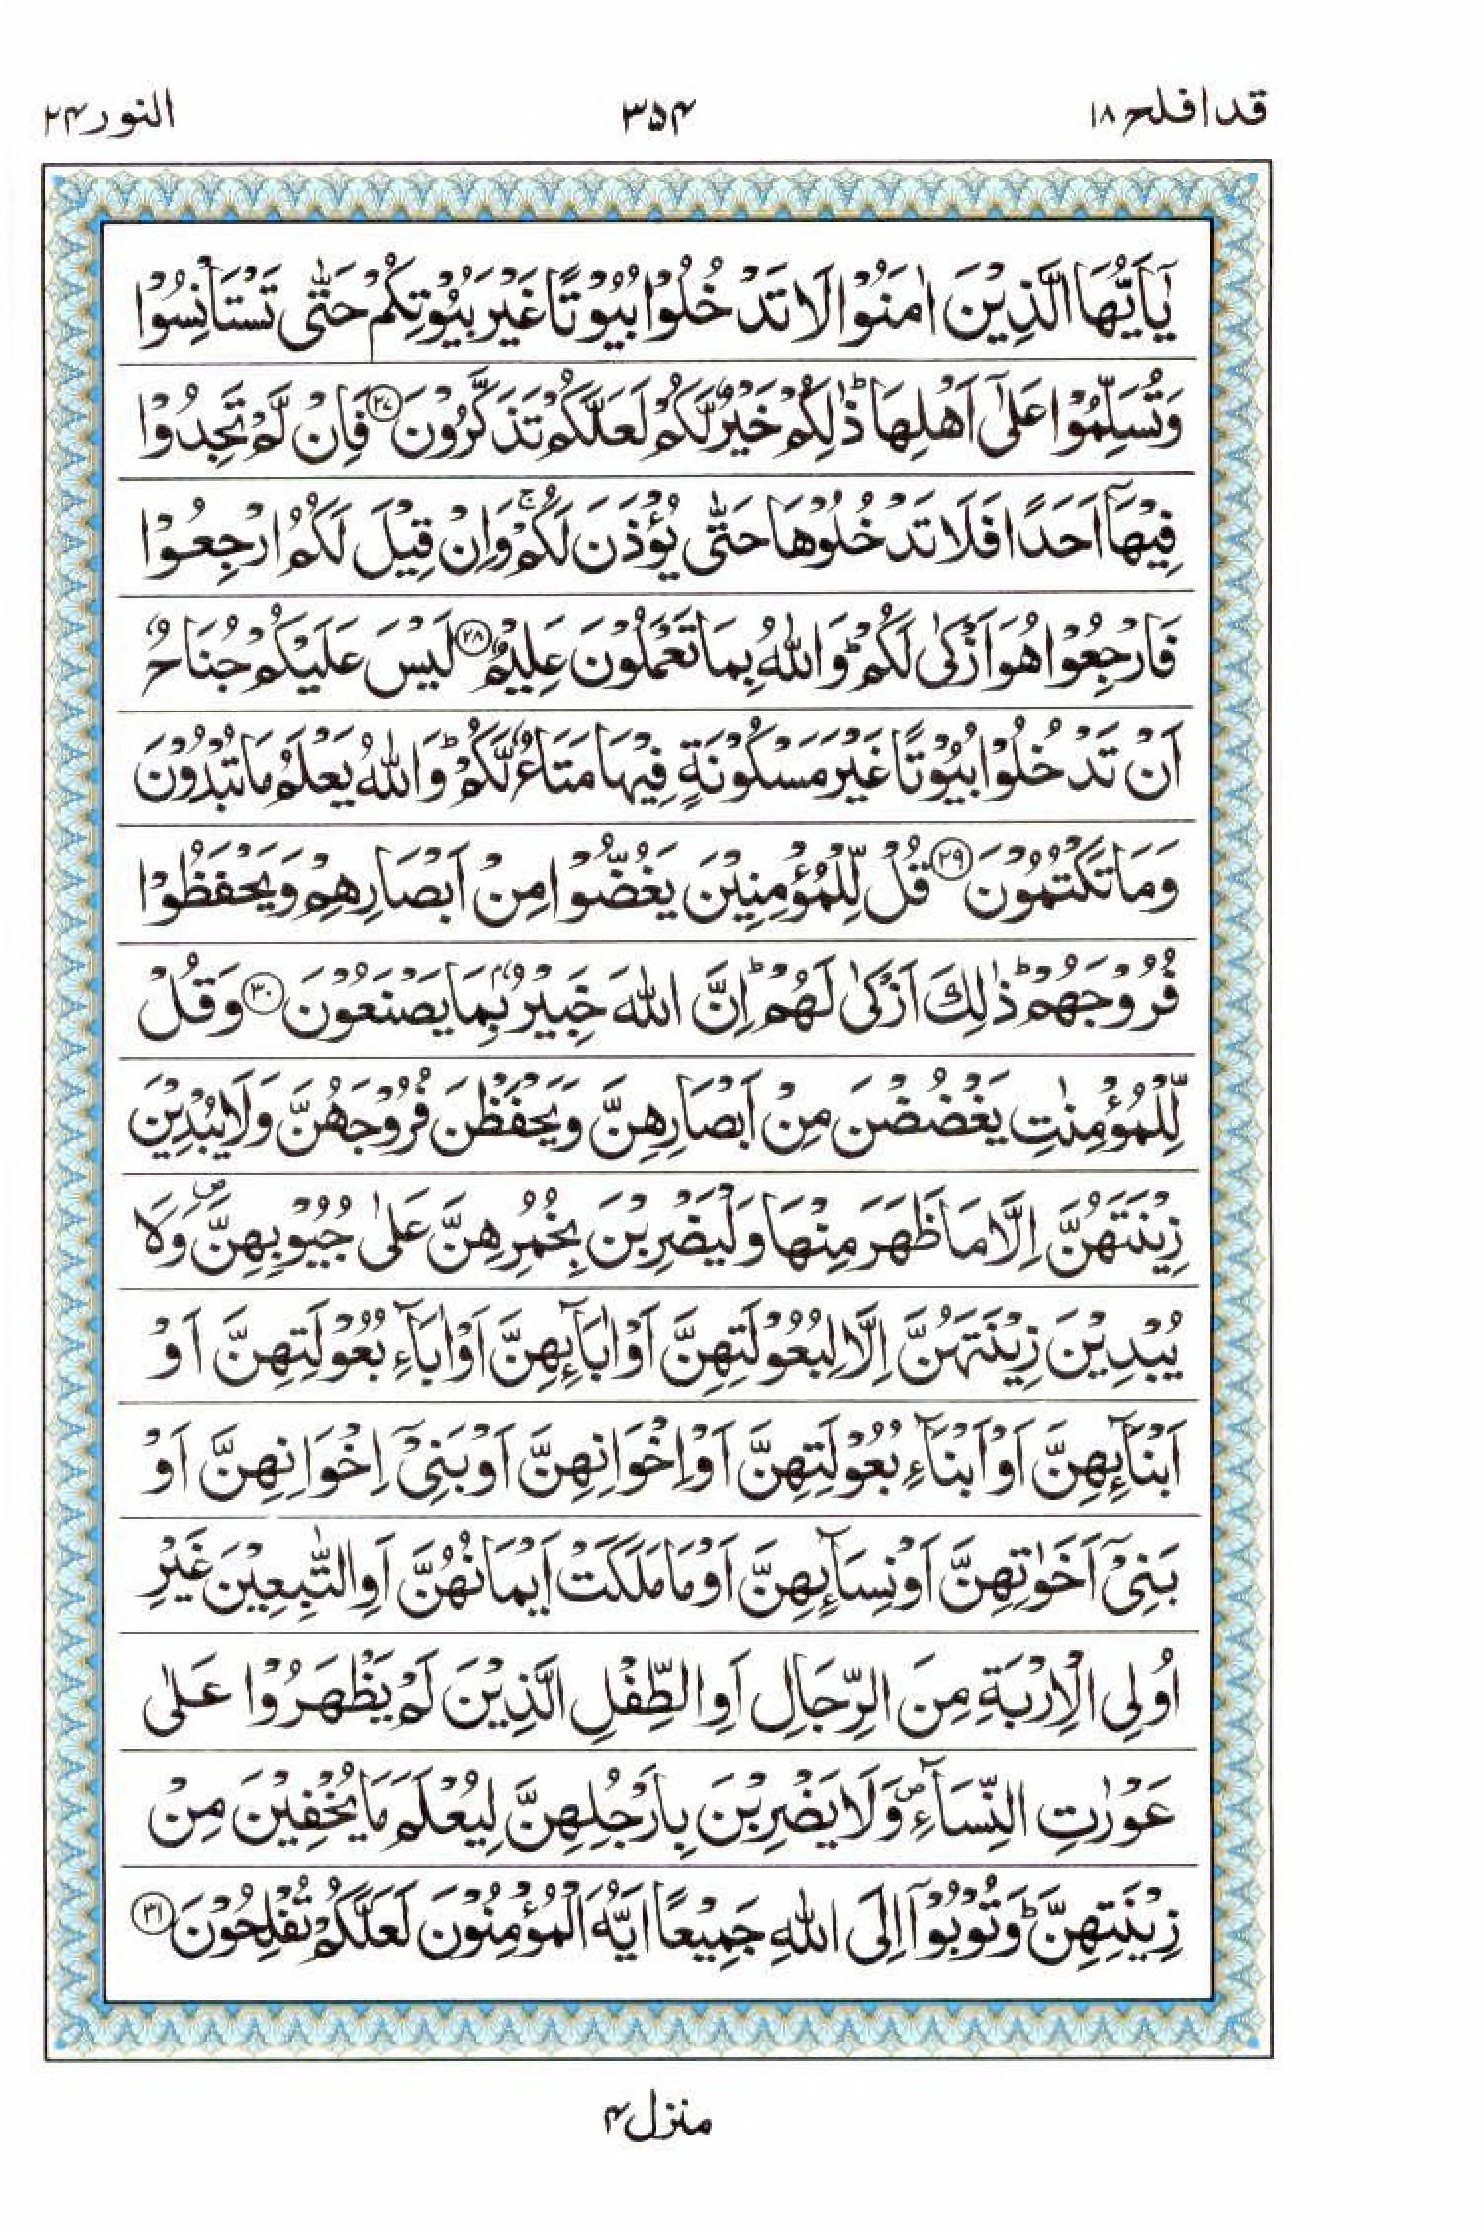 قد افلح ١٨
٣٥۴
النور ٢۴
يٰۤاَيُّهَا الَّذِيْنَ اٰمَنُوْا لَا تَدْخُلُوْا بُيُوْتًا غَيْرَ بُيُوْتِكُمْ حَتّٰى تَسْتَاْنِسُوْا
وَتُسَلِّمُوْا عَلٰٓى اَهْلِهَا ؕ ذٰلِكُمْ خَيْرٌ لَّكُمْ لَعَلَّكُمْ تَذَكَّرُوْنَ ﴿٢٧﴾ فَاِنْ لَّمْ تَجِدُوْا
فِيْهَاۤ اَحَدًا فَلَا تَدْخُلُوْهَا حَتّٰى يُؤْذَنَ لَكُمْ ۚ وَاِنْ قِيْلَ لَكُمُ ارْجِعُوْا
فَارْجِعُوْا هُوَ اَزْكٰى لَكُمْ ؕ وَاللّٰهُ بِمَا تَعْمَلُوْنَ عَلِيْمٌ ﴿٢٨﴾ لَيْسَ عَلَيْكُمْ جُنَاحٌ
اَنْ تَدْخُلُوْا بُيُوْتًا غَيْرَ مَسْكُوْنَةٍ فِيْهَا مَتَاعٌ لَّكُمْ ؕ وَاللّٰهُ يَعْلَمُ مَا تُبْدُوْنَ
وَمَا تَكْتُمُوْنَ ﴿٢٩﴾ قُلْ لِّلْمُؤْمِنِيْنَ يَغُضُّوْا مِنْ اَبْصَارِهِمْ وَيَحْفَظُوْا
فُرُوْجَهُمْ ؕ ذٰلِكَ اَزْكٰى لَهُمْ ؕ اِنَّ اللّٰهَ خَبِيْرٌۢ بِمَا يَصْنَعُوْنَ ﴿٣٠﴾ وَقُلْ
لِّلْمُؤْمِنٰتِ يَغْضُضْنَ مِنْ اَبْصَارِهِنَّ وَيَحْفَظْنَ فُرُوْجَهُنَّ وَلَا يُبْدِيْنَ
زِيْنَتَهُنَّ اِلَّا مَا ظَهَرَ مِنْهَا وَلْيَضْرِبْنَ بِخُمُرِهِنَّ عَلٰى جُيُوْبِهِنَّ ۪ وَلَا
يُبْدِيْنَ زِيْنَتَهُنَّ اِلَّا لِبُعُوْلَتِهِنَّ اَوْ اٰبَآئِهِنَّ اَوْ اٰبَآءِ بُعُوْلَتِهِنَّ اَوْ
اَبْنَآئِهِنَّ اَوْ اَبْنَآءِ بُعُوْلَتِهِنَّ اَوْ اِخْوَانِهِنَّ اَوْ بَنِيْۤ اِخْوَانِهِنَّ اَوْ
بَنِيْۤ اَخَوٰتِهِنَّ اَوْ نِسَآئِهِنَّ اَوْ مَا مَلَكَتْ اَيْمَانُهُنَّ اَوِ التّٰبِعِيْنَ غَيْرِ
اُولِى الْاِرْبَةِ مِنَ الرِّجَالِ اَوِ الطِّفْلِ الَّذِيْنَ لَمْ يَظْهَرُوْا عَلٰى
عَوْرٰتِ النِّسَآءِ ۪ وَلَا يَضْرِبْنَ بِاَرْجُلِهِنَّ لِيُعْلَمَ مَا يُخْفِيْنَ مِنْ
زِيْنَتِهِنَّ ؕ وَتُوْبُوْۤا اِلَى اللّٰهِ جَمِيْعًا اَيُّهَ الْمُؤْمِنُوْنَ لَعَلَّكُمْ تُفْلِحُوْنَ ﴿٣١﴾
منزل ۴